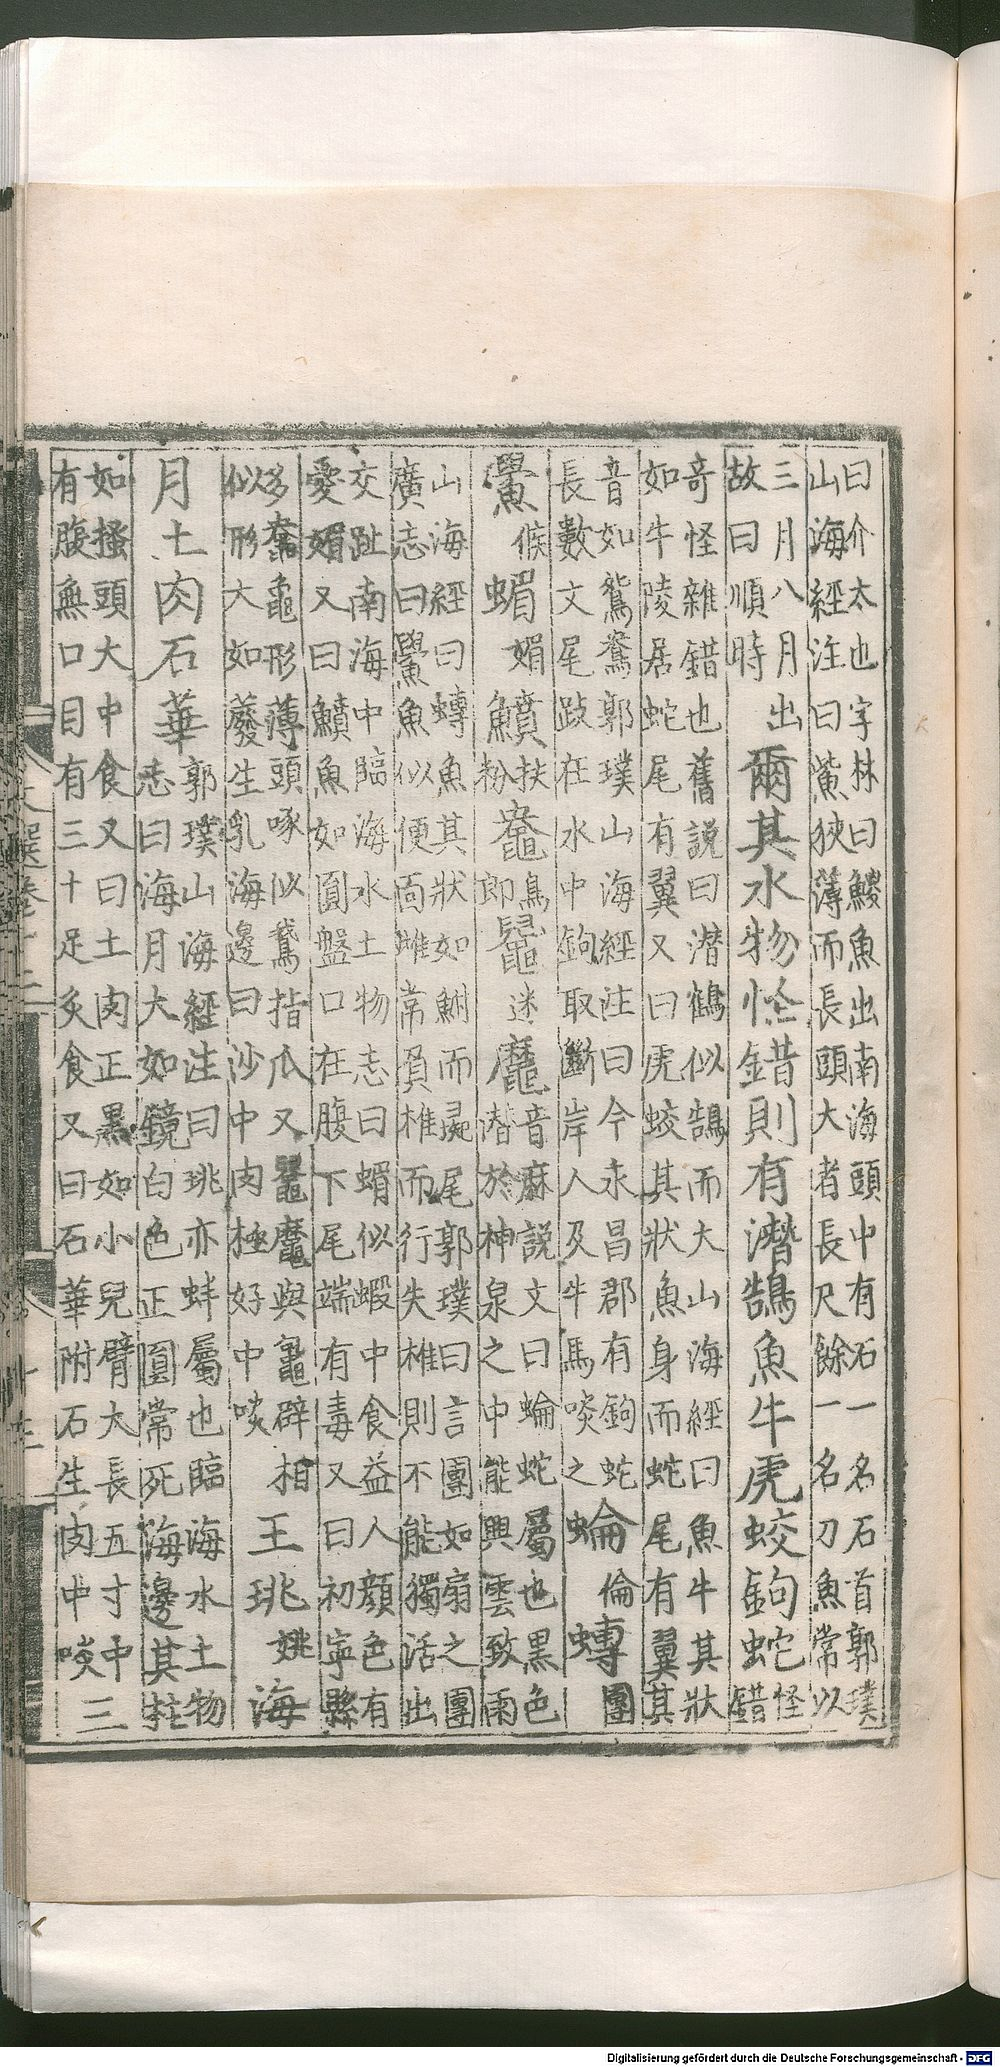 曰介太也字林曰鯼魚出南海頭中有石一名石首郭璞
山海經注曰鮆狹薄而長頭大者長尺餘一名刀魚常以
三月八月出
故曰順時
爾其水物怪錯則有潛鵠魚牛虎蛟鉤蛇
怪
錯
奇怪雜錯也舊説曰潜鶴似鵠而大山海經曰魚牛其狀
如牛陵居蛇尾有翼又曰虎蛟其狀魚身而蛇尾有翼其
音如鴛鴦郭璞山海經注曰今永昌郡有鉤蛇
長數丈尾跂在水中鉤取斷岸人及牛馬啖之
蜦倫𧑗團
鱟候蝞媚鱝扶粉𪓟鳥郎𪓬迷𪓹
音麻説文曰蜦蛇屬也黑色
潜於神泉之中能興雲致雨
山海經曰𧑗魚其狀如鮒而彘尾郭璞曰言團如扇之團
廣志曰鱟魚似便面雌常負雄而行失雄則不能獨活出
交趾南海中臨海水土物志曰蝞似蝦中食益人顏色有
愛媚又曰鱝魚如圓盤口在腹下尾端有毒又曰初寧縣
多𪓟龜形薄頭啄似鵞指爪又𪓬𪓹與鼊辟相
似形大如䕠生乳海邊曰沙中肉極好中啖
王珧姚海
月土肉石華
郭璞山海經注曰珧亦蚌屬也臨海水土物
志曰海月大如鏡白色正圓常死海邊其柱
如搔頭大中食又曰土肉正黑如小兒臂大長五寸中
有腹無口目有三十足炙食又曰石華附石生肉中啖三
文選卷十二
十三
Digitalisierung gefördert durch die Deutsche Forschungsgemeinschaft - DFG